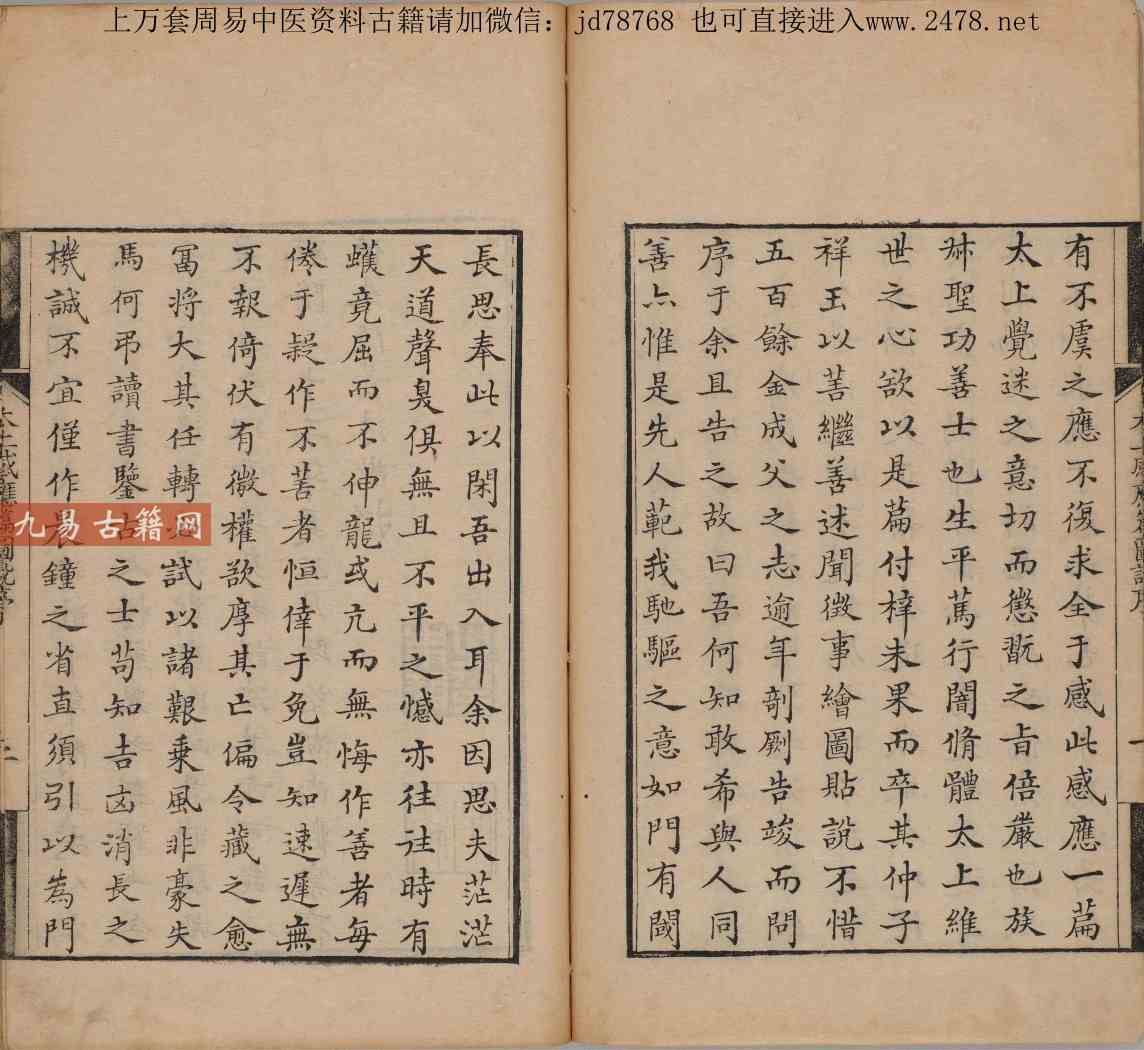 上万套周易中医资料古籍请加微信：jd78768 也可直接进入www.2478.net
有不虞之應不復求全于感此感應一篇
太上覺迷之意切而懲翫之旨倍嚴也族
姊聖功善士也生平篤行闇脩體太上維
世之心欲以是篇付梓未果而卒其仲子
祥王以善繼善述聞徵事繪圖貼說不惜
五百餘金成父之志逾年剞劂告竣而問
序于余且告之故曰吾何知敢希與人同
善亦惟是先人範我馳驅之意如門有閾
長思奉此以閑吾出入耳余因思夫茫茫
天道聲臭俱無且不平之憾亦往往時有
蠖竟屈而不伸龍或亢而無悔作善者每
倦于疑作不善者恒倖于免豈知速遲無
不報倚伏有微權欲厚其亡偏令藏之愈
冨將大其任轉 試以諸艱乗風非豪失
馬何弔讀書鑒古之士苟知吉凶消長之
機誠不宜僅作晨鐘之省直須引以為門
九易古籍网